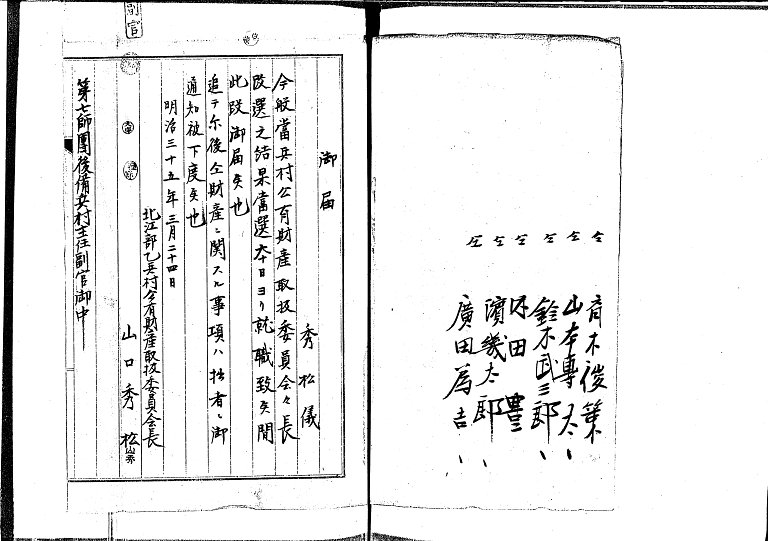 仝 青木後策
仝 山本專太、
仝 鈴木武三郎、
仝 内田豊三
仝 濱幾太郎、
仝 廣田為吉、
副官
御届
秀松儀
今般當兵村公有財産取扱委員会々長
改選之結果當選本日ヨリ就職致矣間
此段御届矣也
追テ尓後仝財産ニ関スル事項ハ拙者ニ御
通知被下度矣也
明治三十五年三月二十四日
北江部乙兵村公有財産取扱委員会長
山口秀松
第七師團後備兵村主任副官御中